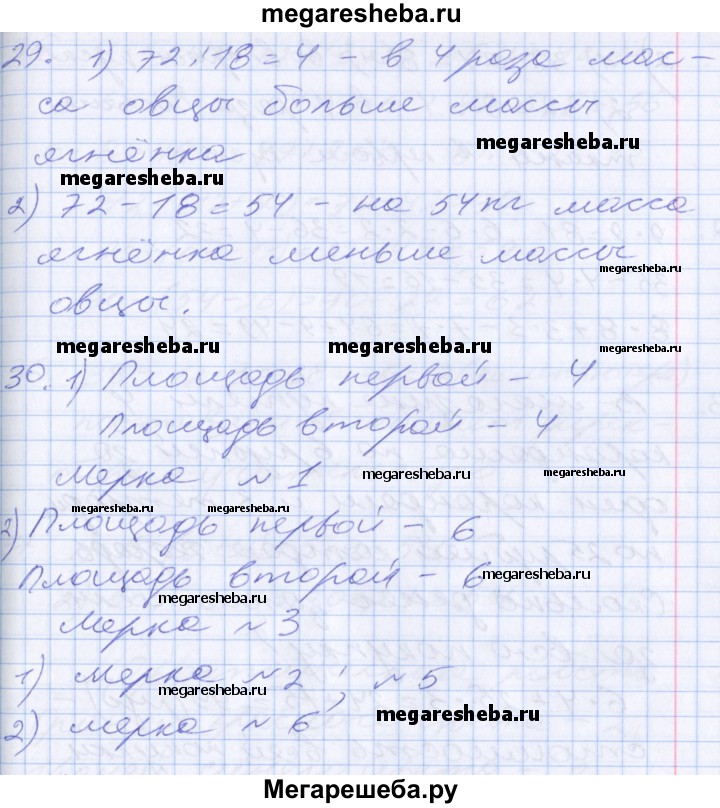 megaresheba.ru
29. 1) 72:18=4 – в 4 раза мас-
са овцы больше массы
megaresheba.ru
ягнёнка
megaresheba.ru
2) 72-18=54 – на 54 кг масса
ягнёнка меньше массы
megaresheba.ru
овцы.
megaresheba.ru megaresheba.ru
30. 1) Площадь первой – 4
Площадь второй – 4
Мерка №1
megaresheba.ru megaresheba.ru
megaresheba.ru megaresheba.ru
2) Площадь первой – 6
Площадь второй – 6
megaresheba.ru
megaresheba.ru
Мерка №3
1) Мерка №2, №5
megaresheba.ru
2) Мерка №6
megaresheba.ru
Мегарешеба.ру